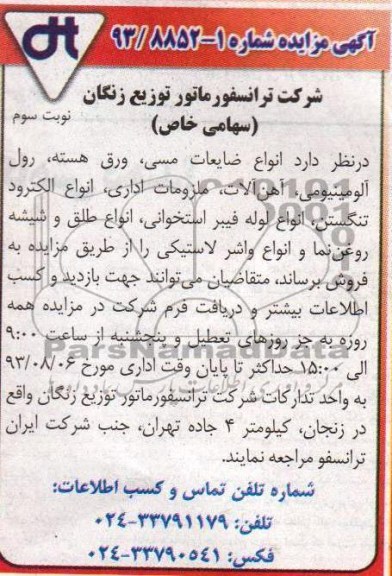 آگهی مزایده شماره ۱-۸۸۵۲ /۹۳
dt
شرکت ترانسفورماتور توزیع زنگان
(سهامی خاص)
نوبت سوم
درنظر دارد انواع ضایعات مسی، ورق هسته، رول
آلومینیومی، آهن‌آلات، ملزومات اداری، انواع الکترود
تنگستن، انواع لوله فیبر استخوانی، انواع طلق و شیشه
روغن‌نما و انواع واشر لاستیکی را از طریق مزایده به
فروش برساند، متقاضیان می‌توانند جهت بازدید و کسب
اطلاعات بیشتر و دریافت فرم شرکت در مزایده همه
روزه به جز روزهای تعطیل و پنجشنبه از ساعت ۹:۰۰
الی ۱۵:۰۰ حداکثر تا پایان وقت اداری مورخ ۹۳/۰۸/۰۶
به واحد تدارکات شرکت ترانسفورماتور توزیع زنگان واقع
در زنجان، کیلومتر ۴ جاده تهران، جنب شرکت ایران
ترانسفو مراجعه نمایند.
شماره تلفن تماس و کسب اطلاعات:
تلفن: ۳۳۷۹۱۱۷۹-۰۲۴
فکس: ۳۳۷۹۰۵۴۱-۰۲۴
ParsNamadData